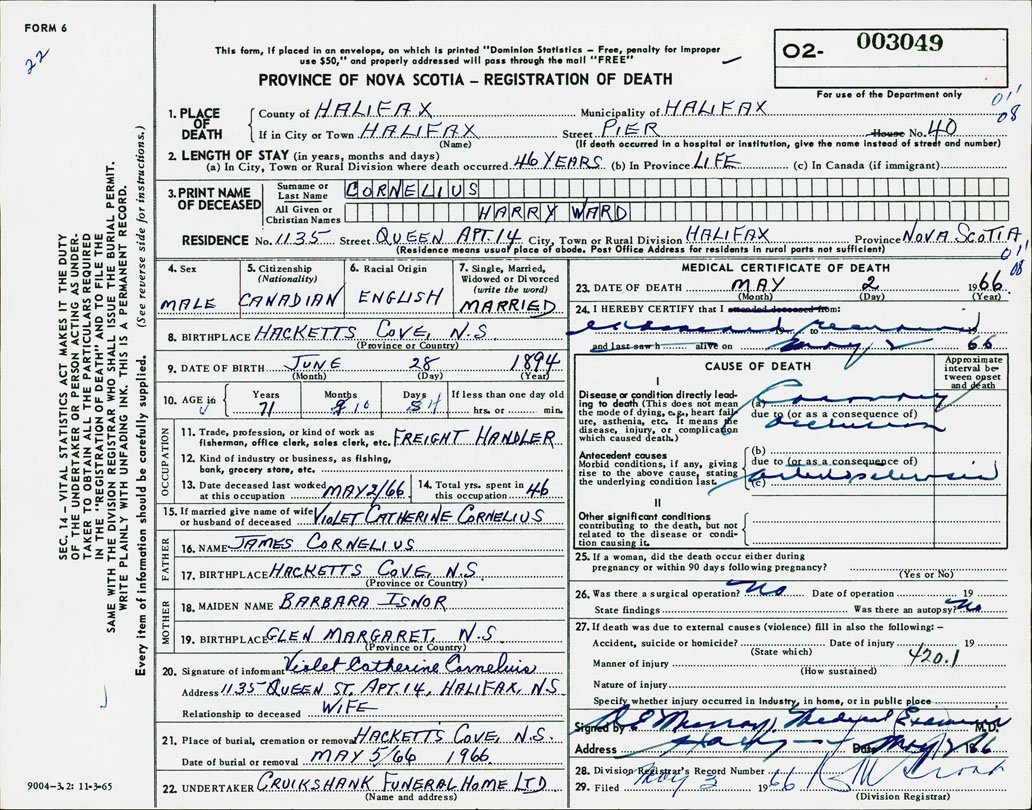 FORM 6
22
This form, if placed in an envelope, on which is printed "Dominion Statistics – Free, penalty for improper
use $50," and properly addressed will pass through the mail "FREE"
PROVINCE OF NOVA SCOTIA – REGISTRATION OF DEATH
O2- 003049
For use of the Department only
011
08
1. PLACE OF DEATH
County of HALIFAX Municipality of HALIFAX
If in City or Town HALIFAX Street PIER House No. 40
(Name) (If death occurred in a hospital or institution, give the name instead of street and number)
2. LENGTH OF STAY (in years, months and days)
(a) In City, Town or Rural Division where death occurred 46 YEARS (b) In Province LIFE (c) In Canada (if immigrant)
3. PRINT NAME OF DECEASED
Surname or Last Name CORNELIUS
All Given or Christian Names HARRY WARD
RESIDENCE No. 1135 Street QUEEN APT. 14 City, Town or Rural Division HALIFAX Province NOVA SCOTIA
(Residence means usual place of abode. Post Office Address for residents in rural parts not sufficient)
011
08
4. Sex MALE
5. Citizenship (Nationality) CANADIAN
6. Racial Origin ENGLISH
7. Single, Married, Widowed or Divorced (write the word) MARRIED
8. BIRTHPLACE HACKETTS COVE, N.S
(Province or Country)
9. DATE OF BIRTH JUNE 28 1894
(Month) (Day) (Year)
10. AGE in Years Months Days If less than one day old
71 10 4 hrs. or min.
OCCUPATION
11. Trade, profession, or kind of work as
fisherman, office clerk, sales clerk, etc. FREIGHT HANDLER
12. Kind of industry or business, as fishing,
bank, grocery store, etc.
13. Date deceased last worked at this occupation MAY 2/66
14. Total yrs. spent in this occupation 46
15. If married give name of wife or husband of deceased VIOLET CATHERINE CORNELIUS
FATHER
16. NAME JAMES CORNELIUS
17. BIRTHPLACE HACKETTS COVE, N.S.
(Province or Country)
MOTHER
18. MAIDEN NAME BARBARA ISNOR
19. BIRTHPLACE GLEN MARGARET, N.S
(Province or Country)
20. Signature of informant Violet Catherine Cornelius
Address 1135 QUEEN ST. APT. 14, HALIFAX, N.S
Relationship to deceased WIFE
21. Place of burial, cremation or removal HACKETTS COVE, N.S.
Date of burial or removal MAY 5/66 1966
22. UNDERTAKER CRUIKSHANK FUNERAL HOME LTD
(Name and address)
MEDICAL CERTIFICATE OF DEATH
23. DATE OF DEATH MAY 2 1966
(Month) (Day) (Year)
24. I HEREBY CERTIFY that I attended deceased from:
19 to 19
and last saw h alive on May 2 66
CAUSE OF DEATH
Approximate interval between onset and death
I
Disease or condition directly leading to death (This does not mean the mode of dying, e.g., heart failure, asthenia, etc. It means the disease, injury, or complication which caused death.)
(a) Coronary
due to (or as a consequence of)
occlusion
Antecedent causes
Morbid conditions, if any, giving rise to the above cause, stating the underlying condition last.
(b)
due to (or as a consequence of)
(c)
II
Other significant conditions contributing to the death, but not related to the disease or condition causing it.
25. If a woman, did the death occur either during
pregnancy or within 90 days following pregnancy?
(Yes or No)
26. Was there a surgical operation? No Date of operation 19
State findings Was there an autopsy? No
27. If death was due to external causes (violence) fill in also the following: –
Accident, suicide or homicide? Date of injury 19
(State which)
Manner of injury 420.1
(How sustained)
Nature of injury
Specify whether injury occurred in Industry, in home, or in public place
Signed by Murray, Medical Examiner M.D.
Address Date May 2 66
28. Division Registrar's Record Number
29. Filed May 3 1966
(Division Registrar)
SEC. 14 – VITAL STATISTICS ACT MAKES IT THE DUTY
OF THE UNDERTAKER OR PERSON ACTING AS UNDER-
TAKER TO OBTAIN ALL THE PARTICULARS REQUIRED
IN THE "REGISTRATION OF DEATH" AND TO FILE THE
SAME WITH THE DIVISION REGISTRAR WHO SHALL ISSUE THE BURIAL PERMIT.
WRITE PLAINLY WITH UNFADING INK. THIS IS A PERMANENT RECORD.
Every item of information should be carefully supplied. (See reverse side for instructions.)
9004–3.2: 11-3-65